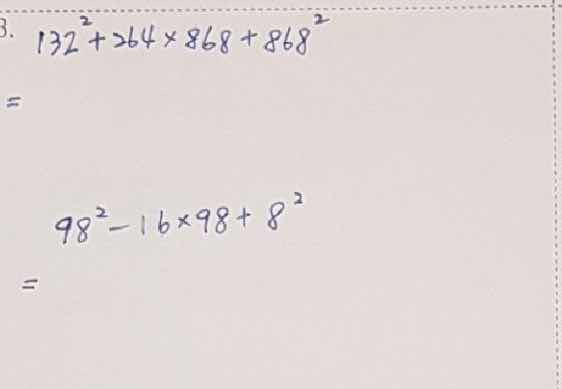 3. 132²+264×868+868²
=
98²-16×98+8²
=